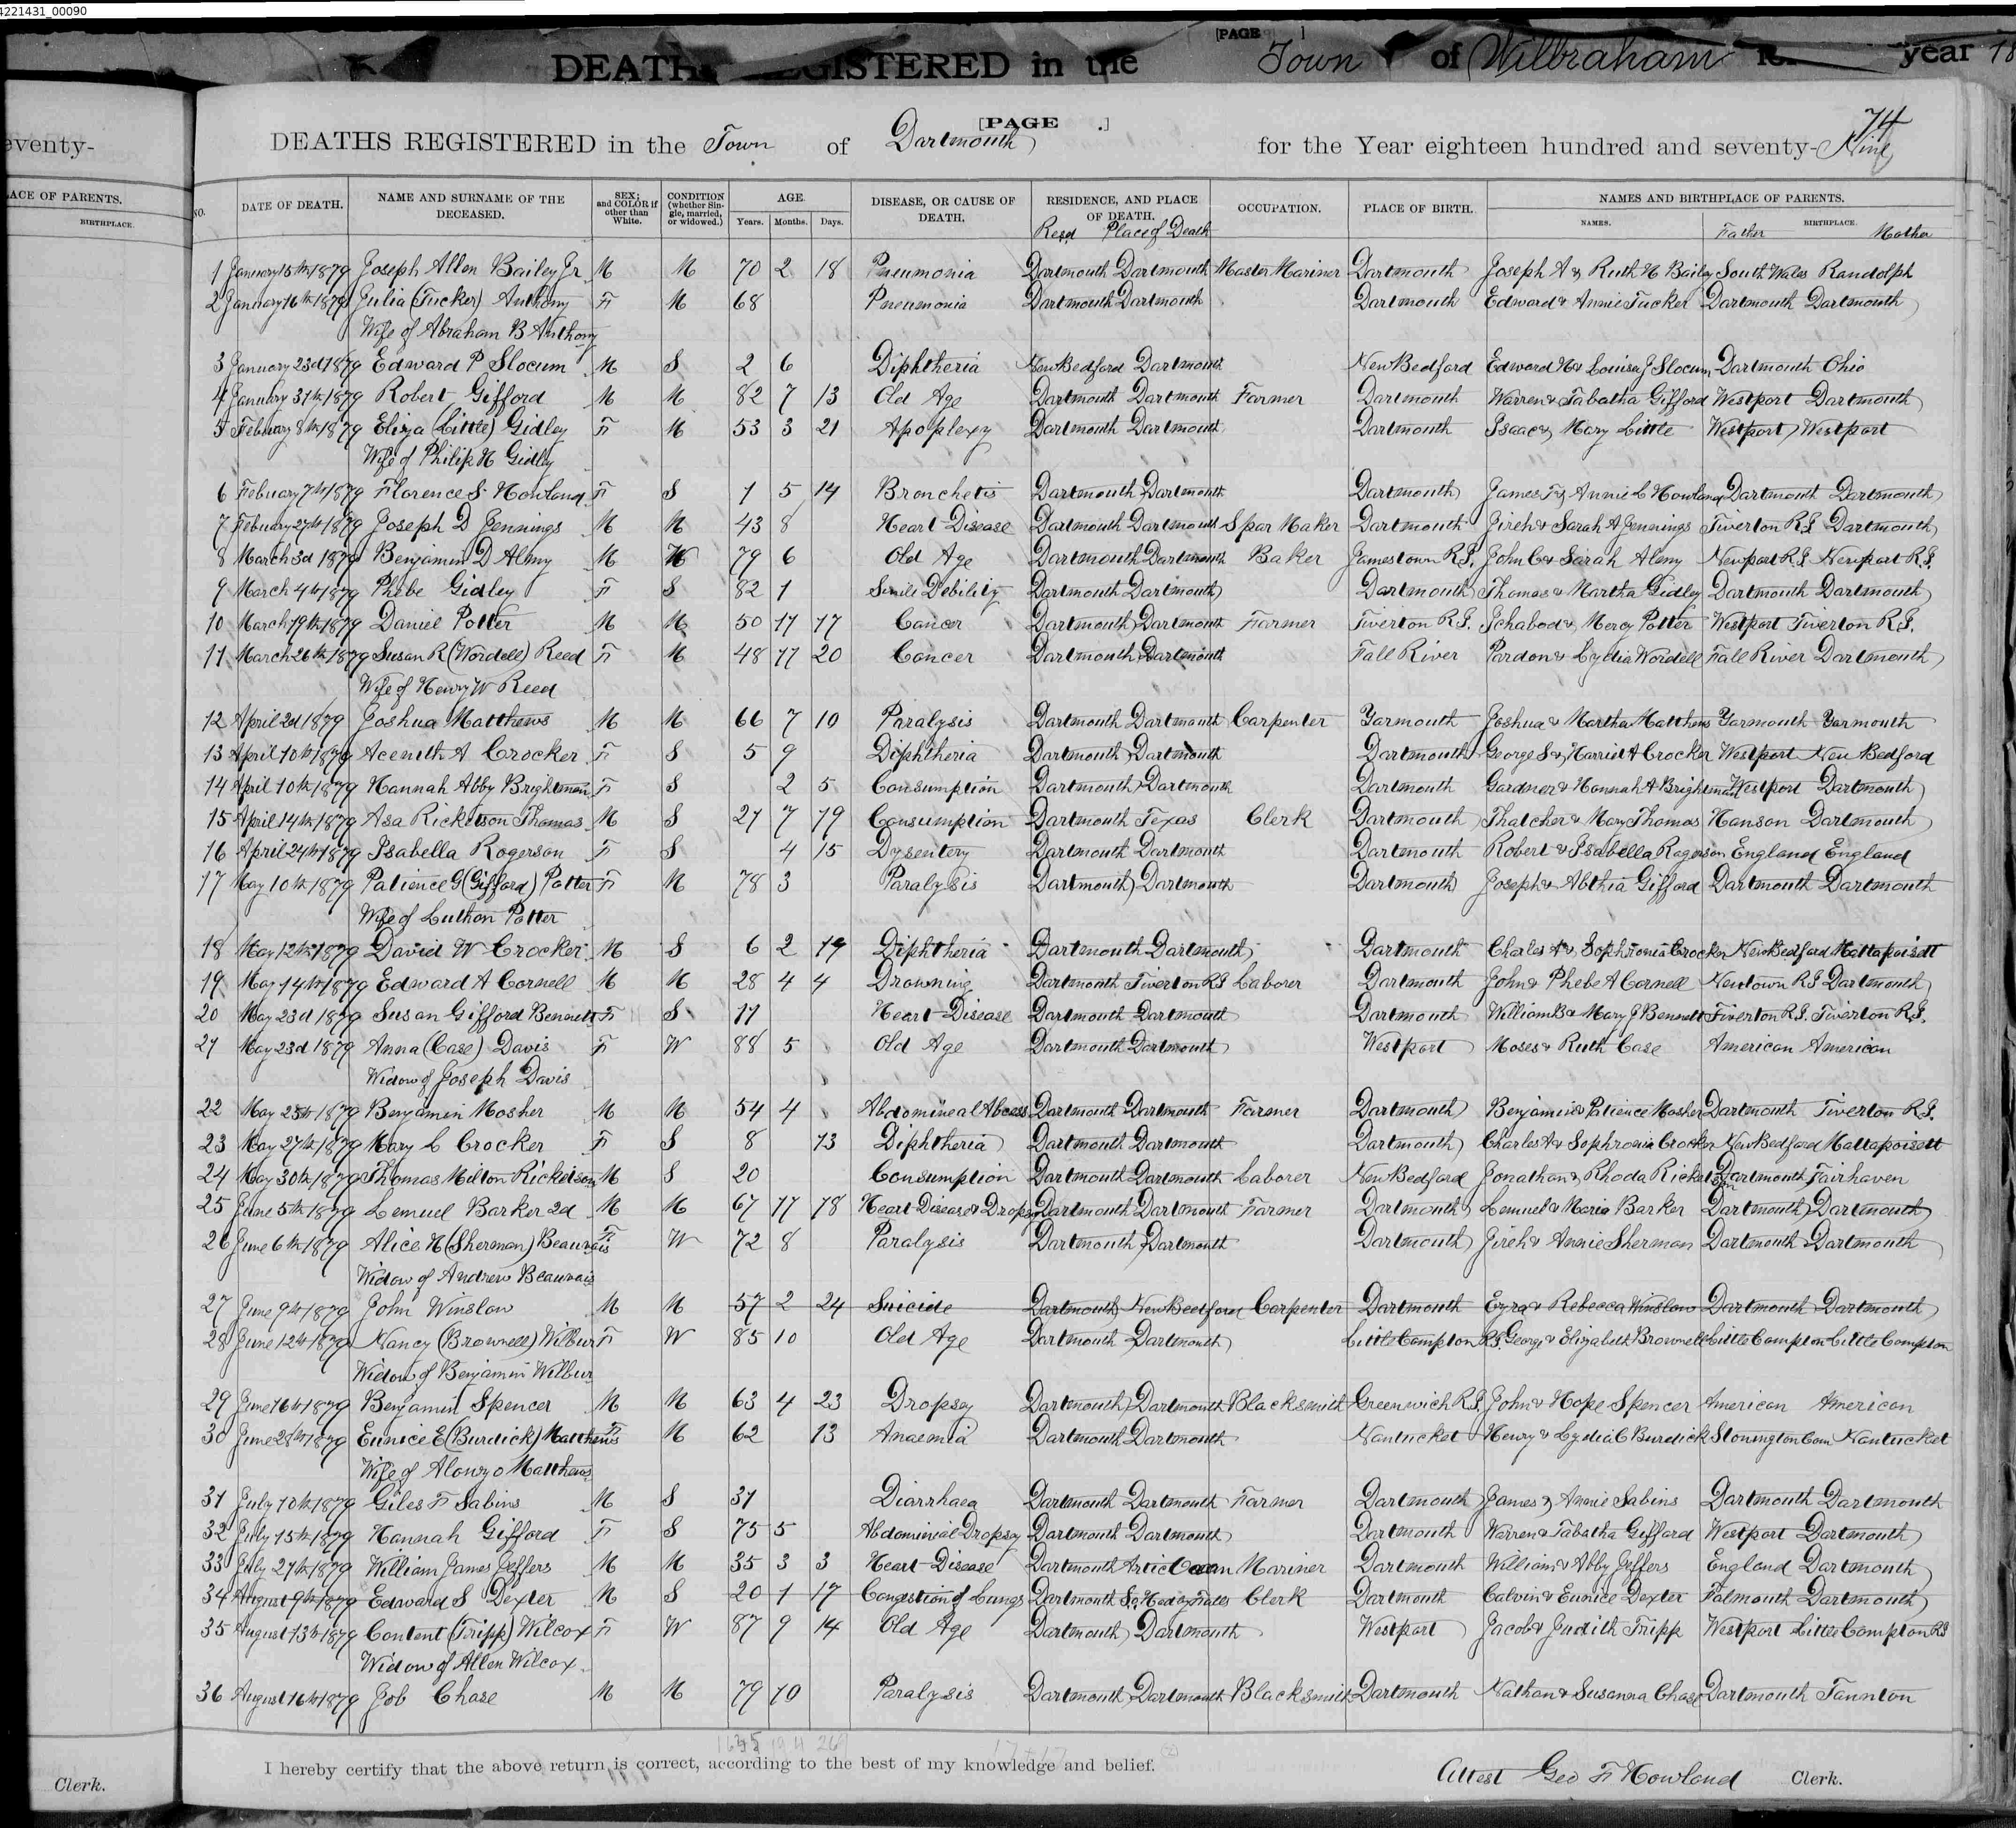 4221431_00090
[PAGE ]
DEATHS REGISTERED in the Town of Wilbraham year 18
eventy-
LACE OF PARENTS.
BIRTHPLACE.
Clerk.
[PAGE .]
74
DEATHS REGISTERED in the Town of Dartmouth for the Year eighteen hundred and seventy-Nine
NO. DATE OF DEATH. NAME AND SURNAME OF THE DECEASED. SEX; and COLOR if other than White. CONDITION (whether Single, married, or widowed.) AGE. Years. Months. Days. DISEASE, OR CAUSE OF DEATH. RESIDENCE, AND PLACE OF DEATH. OCCUPATION. PLACE OF BIRTH. NAMES AND BIRTHPLACE OF PARENTS. NAMES. BIRTHPLACE.
Resd Place of Death Father Mother
1 January 15th 1879 Joseph Allen Bailey Jr M M 70 2 18 Pneumonia Dartmouth Dartmouth Master Mariner Dartmouth Joseph A & Ruth H Bailey South Wales Randolph
2 January 16th 1879 Julia (Tucker) Anthony F M 68 Pneumonia Dartmouth Dartmouth Dartmouth Edward & Annie Tucker Dartmouth Dartmouth
Wife of Abraham B Anthony
3 January 23d 1879 Edward P Slocum M S 2 6 Diphtheria New Bedford Dartmouth New Bedford Edward H & Louisa J Slocum Dartmouth Ohio
4 January 31th 1879 Robert Gifford M M 82 7 13 Old Age Dartmouth Dartmouth Farmer Dartmouth Warren & Tabatha Gifford Westport Dartmouth
5 Febuary 8th 1879 Eliza (Little) Gidley F M 53 3 21 Apoplexy Dartmouth Dartmouth Dartmouth Isaac & Mary Little Westport Westport
Wife of Philip H Gidley
6 Febuary 7th 1879 Florence S Howland F S 1 5 14 Bronchetis Dartmouth Dartmouth Dartmouth James F & Annie L Howland Dartmouth Dartmouth
7 Febuary 27th 1879 Joseph D Jennings M M 43 8 Heart Disease Dartmouth Dartmouth Spar Maker Dartmouth Jireh & Sarah A Jennings Tiverton R.I. Dartmouth
8 March 3d 1879 Benjamin D Almy M W 79 6 Old Age Dartmouth Dartmouth Baker Jamestown R.I. John C & Sarah Almy Newport R.I. Newport R.I.
9 March 4th 1879 Phebe Gidley F S 82 1 Senile Debility Dartmouth Dartmouth Dartmouth Thomas & Martha Gidley Dartmouth Dartmouth
10 March 19th 1879 Daniel Potter M M 50 11 17 Cancer Dartmouth Dartmouth Farmer Tiverton R.I. Ichabod & Mercy Potter Westport Tiverton R.I.
11 March 26th 1879 Susan R (Wordell) Reed F M 48 11 20 Cancer Dartmouth Dartmouth Fall River Pardon & Lydia Wordell Fall River Dartmouth
Wife of Henry W Reed
12 April 2d 1879 Joshua Matthews M M 66 7 10 Paralysis Dartmouth Dartmouth Carpenter Yarmouth Joshua & Martha Matthews Yarmouth Yarmouth
13 April 10th 1879 Acenith A Crocker F S 5 9 Diphtheria Dartmouth Dartmouth Dartmouth George S & Harriet A Crocker Westport New Bedford
14 April 10th 1879 Hannah Abby Brightman F S 2 5 Consumption Dartmouth Dartmouth Dartmouth Gardner & Hannah A Brightman Westport Dartmouth
15 April 14th 1879 Asa Ricketson Thomas M S 21 7 19 Consumption Dartmouth Texas Clerk Dartmouth Thatcher & Mary Thomas Hanson Dartmouth
16 April 24th 1879 Isabella Rogerson F S 4 15 Dysentery Dartmouth Dartmouth Dartmouth Robert & Isabella Rogerson England England
17 May 10th 1879 Patience G (Gifford) Potter F M 78 3 Paralysis Dartmouth Dartmouth Dartmouth Joseph & Abthia Gifford Dartmouth Dartmouth
Wife of Luthon Potter
18 May 12th 1879 David W Crocker M S 6 2 19 Diphtheria Dartmouth Dartmouth Dartmouth Charles A & Sophronia Crocker New Bedford Mattapoisett
19 May 14th 1879 Edward A Cornell M M 28 4 4 Drowning Dartmouth Tiverton R.I Laborer Dartmouth John & Phebe A Cornell Newtown R.I Dartmouth
20 May 23d 1879 Susan Gifford Bennett F S 11 Heart Disease Dartmouth Dartmouth Dartmouth William B & Mary J Bennett Tiverton R.I. Tiverton R.I.
21 May 23d 1879 Anna (Case) Davis F W 88 5 Old Age Dartmouth Dartmouth Westport Moses & Ruth Case American American
Widow of Joseph Davis
22 May 25th 1879 Benjamin Mosher M M 54 4 Abdomineal Abcess Dartmouth Dartmouth Farmer Dartmouth Benjamin & Patience Mosher Dartmouth Tiverton R.I.
23 May 27th 1879 Mary L Crocker F S 8 13 Diphtheria Dartmouth Dartmouth Dartmouth Charles A & Sophronia Crocker New Bedford Mattapoisett
24 May 30th 1879 Thomas Milton Ricketson M S 20 Consumption Dartmouth Dartmouth Laborer New Bedford Jonathan & Rhoda Ricketson Dartmouth Fairhaven
25 June 5th 1879 Lemuel Barker 2d M M 67 11 18 Heart Disease & Dropsy Dartmouth Dartmouth Farmer Dartmouth Lemuel & Maria Barker Dartmouth Dartmouth
26 June 6th 1879 Alice H (Sherman) Beauvais F W 72 8 Paralysis Dartmouth Dartmouth Dartmouth Jireh & Annie Sherman Dartmouth Dartmouth
Widow of Andrew Beauvais
27 June 9th 1879 John Winslow M M 57 2 24 Suicide Dartmouth New Bedford Carpenter Dartmouth Ezra & Rebecca Winslow Dartmouth Dartmouth
28 June 12th 1879 Nancy (Brownell) Wilbur F W 85 10 Old Age Dartmouth Dartmouth Little Compton R.I. George & Elizabeth Brownell Little Compton Little Compton
Widow of Benjamin Wilbur
29 June 16th 1879 Benjamin Spencer M M 63 4 23 Dropsey Dartmouth Dartmouth Blacksmith Greenwich R.I. John & Hope Spencer American American
30 June 28th 1879 Eunice E (Burdick) Matthews F M 62 13 Anaemia Dartmouth Dartmouth Nantucket Henry & Lydia C Burdick Stonington Conn Nantucket
Wife of Alonzo Matthews
31 July 10th 1879 Giles F Sabins M S 31 Diarrhaea Dartmouth Dartmouth Farmer Dartmouth James & Annie Sabins Dartmouth Dartmouth
32 July 15th 1879 Hannah Gifford F S 75 5 Abdominial Dropsy Dartmouth Dartmouth Dartmouth Warren & Tabatha Gifford Westport Dartmouth
33 July 27th 1879 William James Jeffers M M 35 3 3 Heart Disease Dartmouth Artic Ocean Mariner Dartmouth William & Abby Jeffers England Dartmouth
34 August 9th 1879 Edward S Dexter M S 20 1 17 Congestion of Lungs Dartmouth Clerk Dartmouth Calvin & Eunice Dexter Falmouth Dartmouth
35 August 13th 1879 Content (Tripp) Wilcox F W 87 9 14 Old Age Dartmouth Dartmouth Westport Jacob & Judith Tripp Westport Little Compton R.I
Widow of Allen Wilcox
36 August 16th 1879 Job Chase M M 79 10 Paralysis Dartmouth Dartmouth Blacksmith Dartmouth Nathan & Susanna Chase Dartmouth Taunton
I hereby certify that the above return is correct, according to the best of my knowledge and belief.
Attest Geo F Howland Clerk.